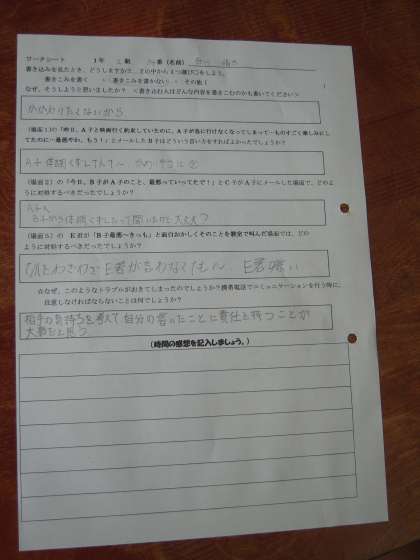 ワークシート 1年 組 番（名前）
書き込みを見たとき、どうしますか？、この中から1つ選びましょう。
書きこみを書く ・ 書きこみを書かない ・ その他（
なぜ、そうしようと思いましたか？ （書き込む人はどんな内容を書きこむのかも書いてください）
かかわりたくないから
（場面1）の「昨日、A子と映画行く約束していたのに、A子が急に行けなくなってしまって…ものすごく楽しみにし
てたのに～最悪やわ、もう！」とメールしたB子はどういう言い方をすればよかったでしょうか？
（場面2）の「今日、B子がA子のこと、最悪っていってたで！」とC子がA子にメールした場面で、どのよ
うに対処するべきだったでしょうか？
A子へ
（場面5）の E君が「B子最悪～きっも」と面白おかしくそのことを教室で叫んだ場面では、どの
ように対処するべきだったでしょうか？
☆なぜ、このようなトラブルがおきてしまったのでしょうか？携帯電話でコミュニケーションを行う時に、
注意しなければならないことは何でしょうか？
相手の気持ちを考えて自分の言ったことに責任を持つことが
大事だと思う
（時間の感想を記入しましょう。）